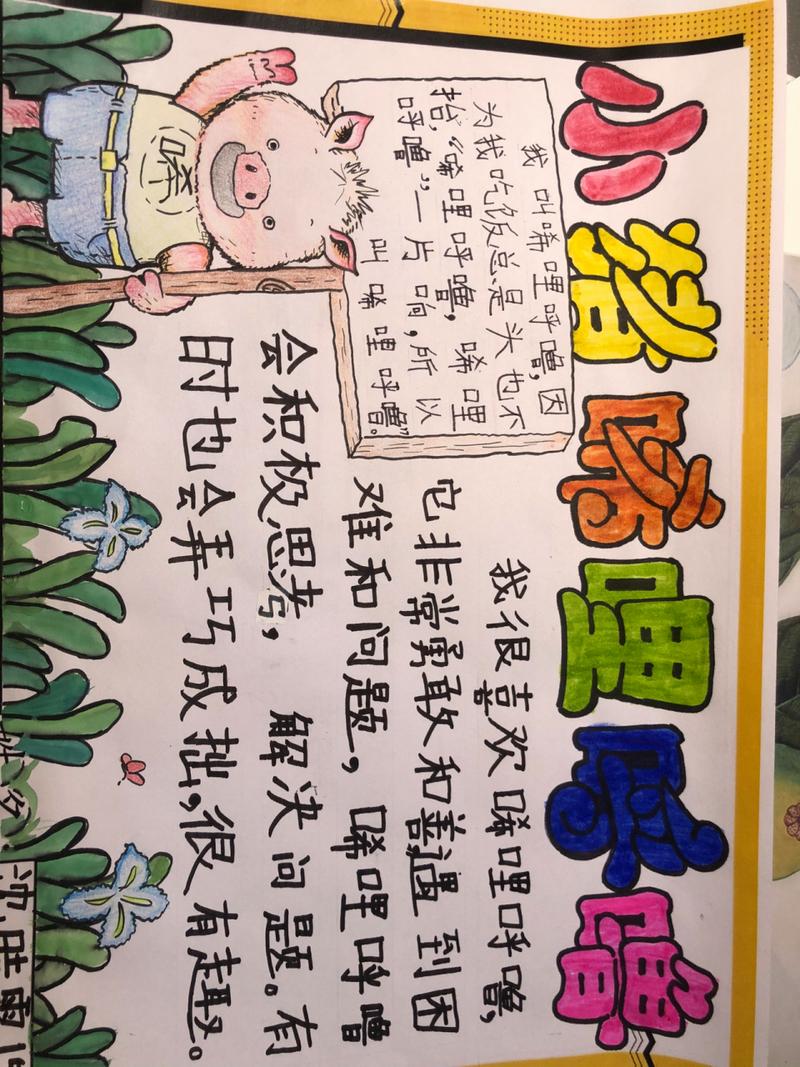 小猪唏哩呼噜
我叫唏哩呼噜,因
为我吃饭总是头也不
抬,“唏哩呼噜,唏哩
呼噜”一片响,所以
叫唏哩呼噜。”
唏
我很喜欢唏哩呼噜,
它非常勇敢和善,遇到困
难和问题,唏哩呼噜
会积极思考,解决问题。有
时也会弄巧成拙,很有趣。